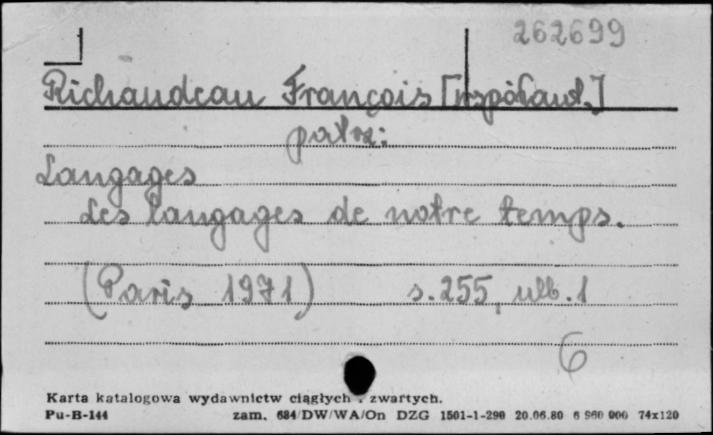 262699
Richaudeau François [współaut.]
patrz:
Langages
Les langages de notre temps.
(Paris 1971) s. 255, ulb. 1
6
Karta katalogowa wydawnictw ciągłych i zwartych.
Pu-B-144 zam. 684/DW/WA/On DZG 1501-1-290 20.06.80 6 960 000 74x120